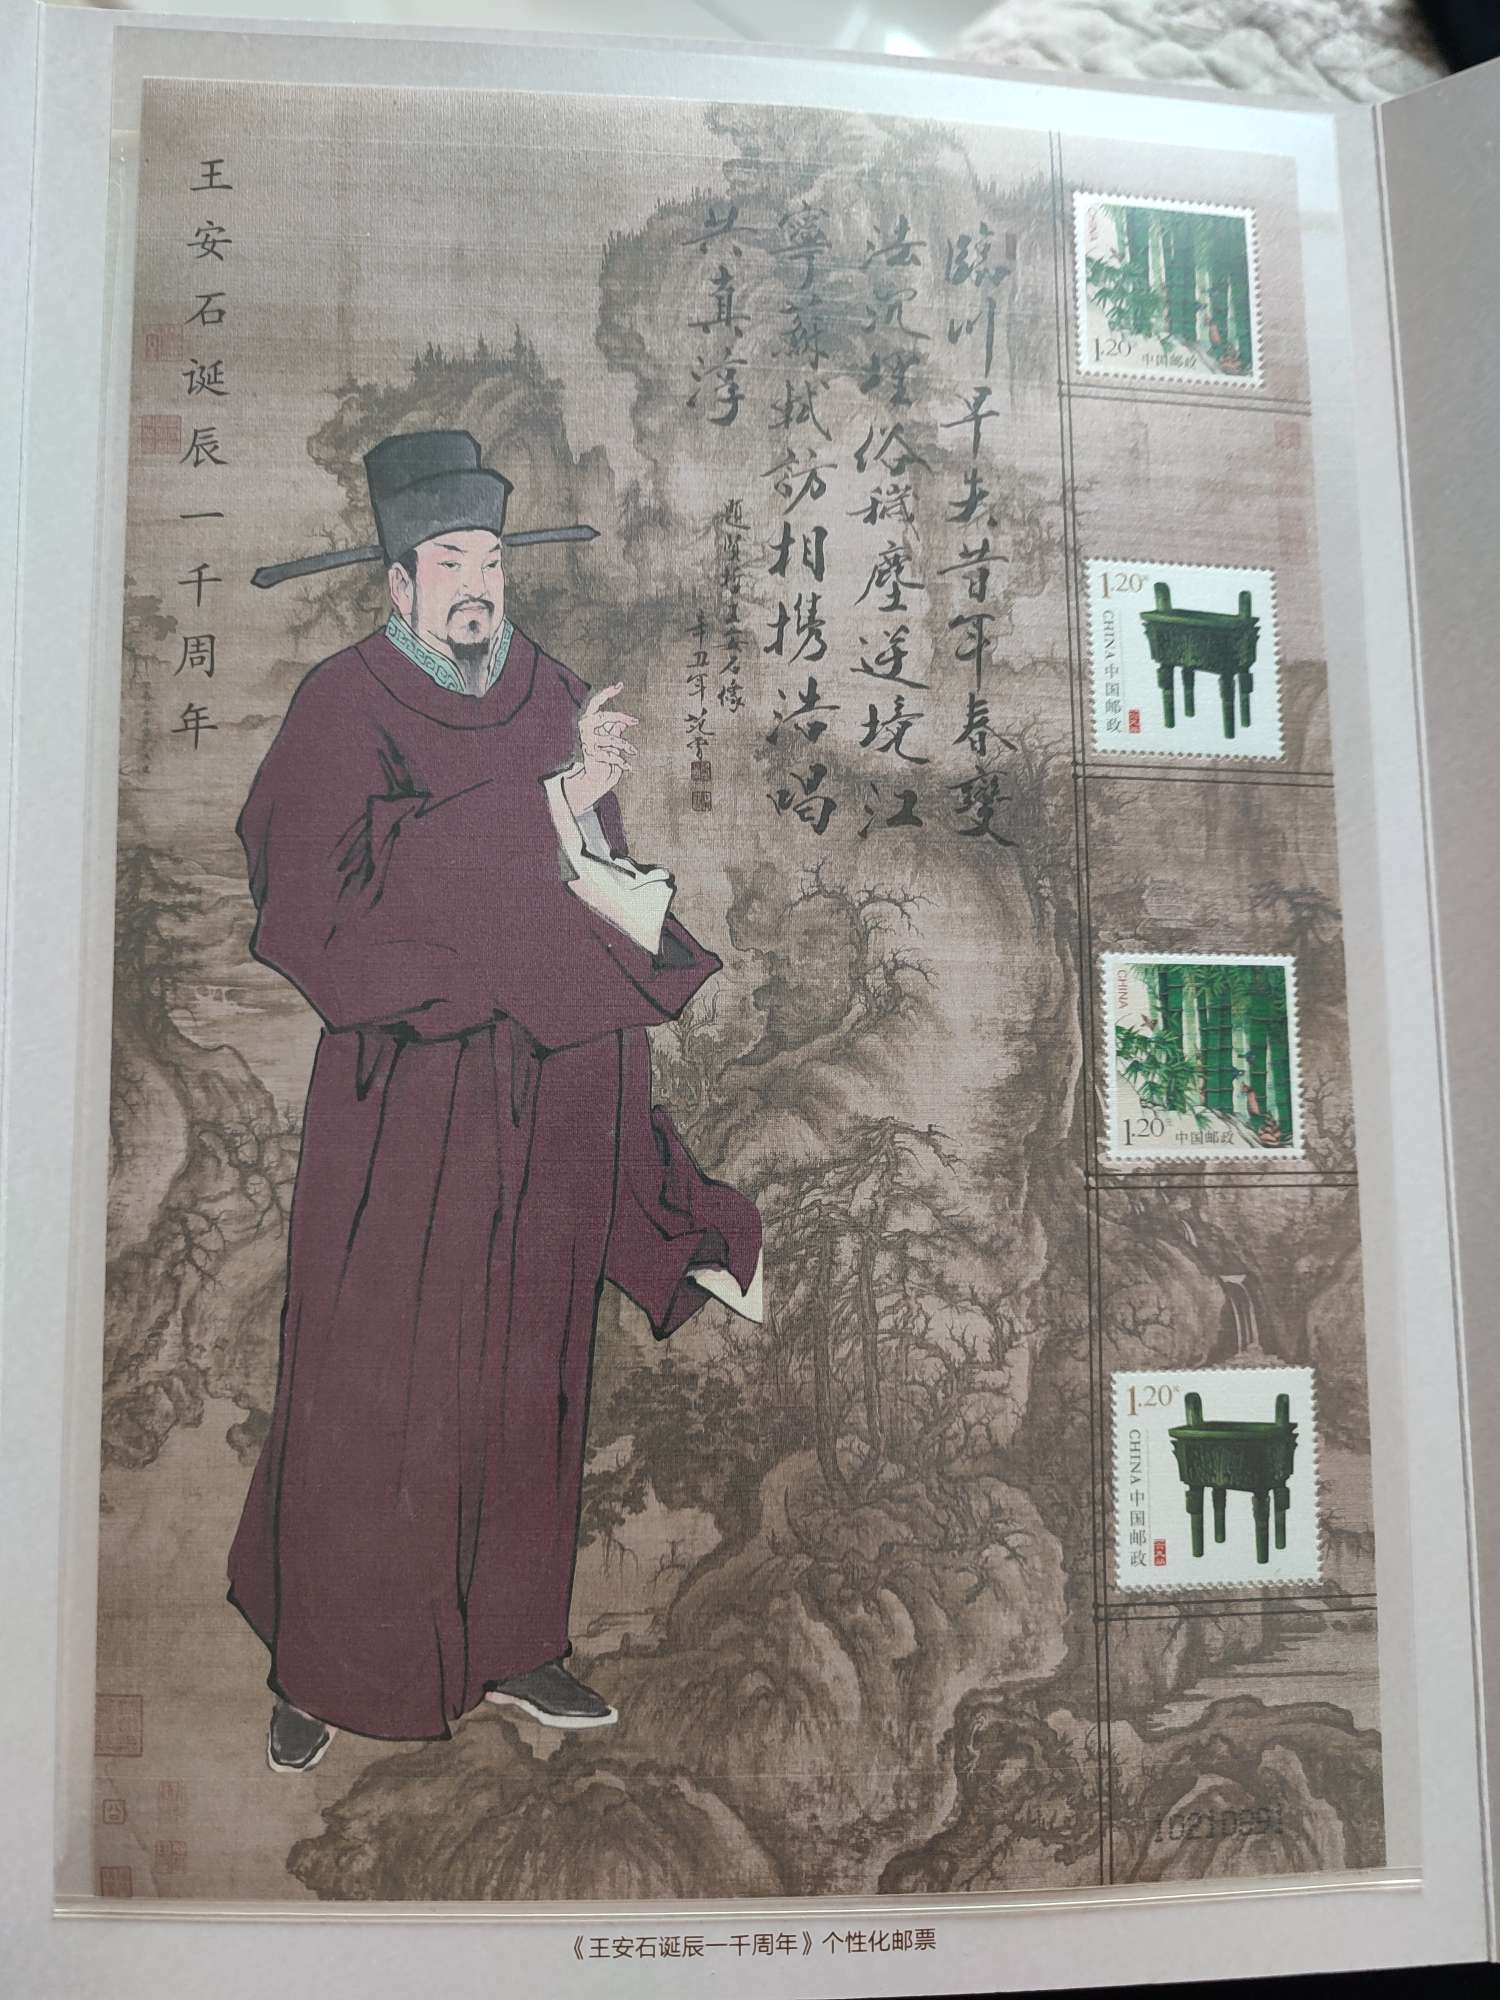 王安石诞辰一千周年
臨川早失昔年春變
法沉埋俗穢塵逆境江
寧蘇軾訪相攜浩唱
共真淳
辛丑年范曾
CHINA
1.20元
中国邮政
1.20元
CHINA中国邮政
CHINA
1.20元
中国邮政
1.20元
CHINA中国邮政
《王安石诞辰一千周年》个性化邮票